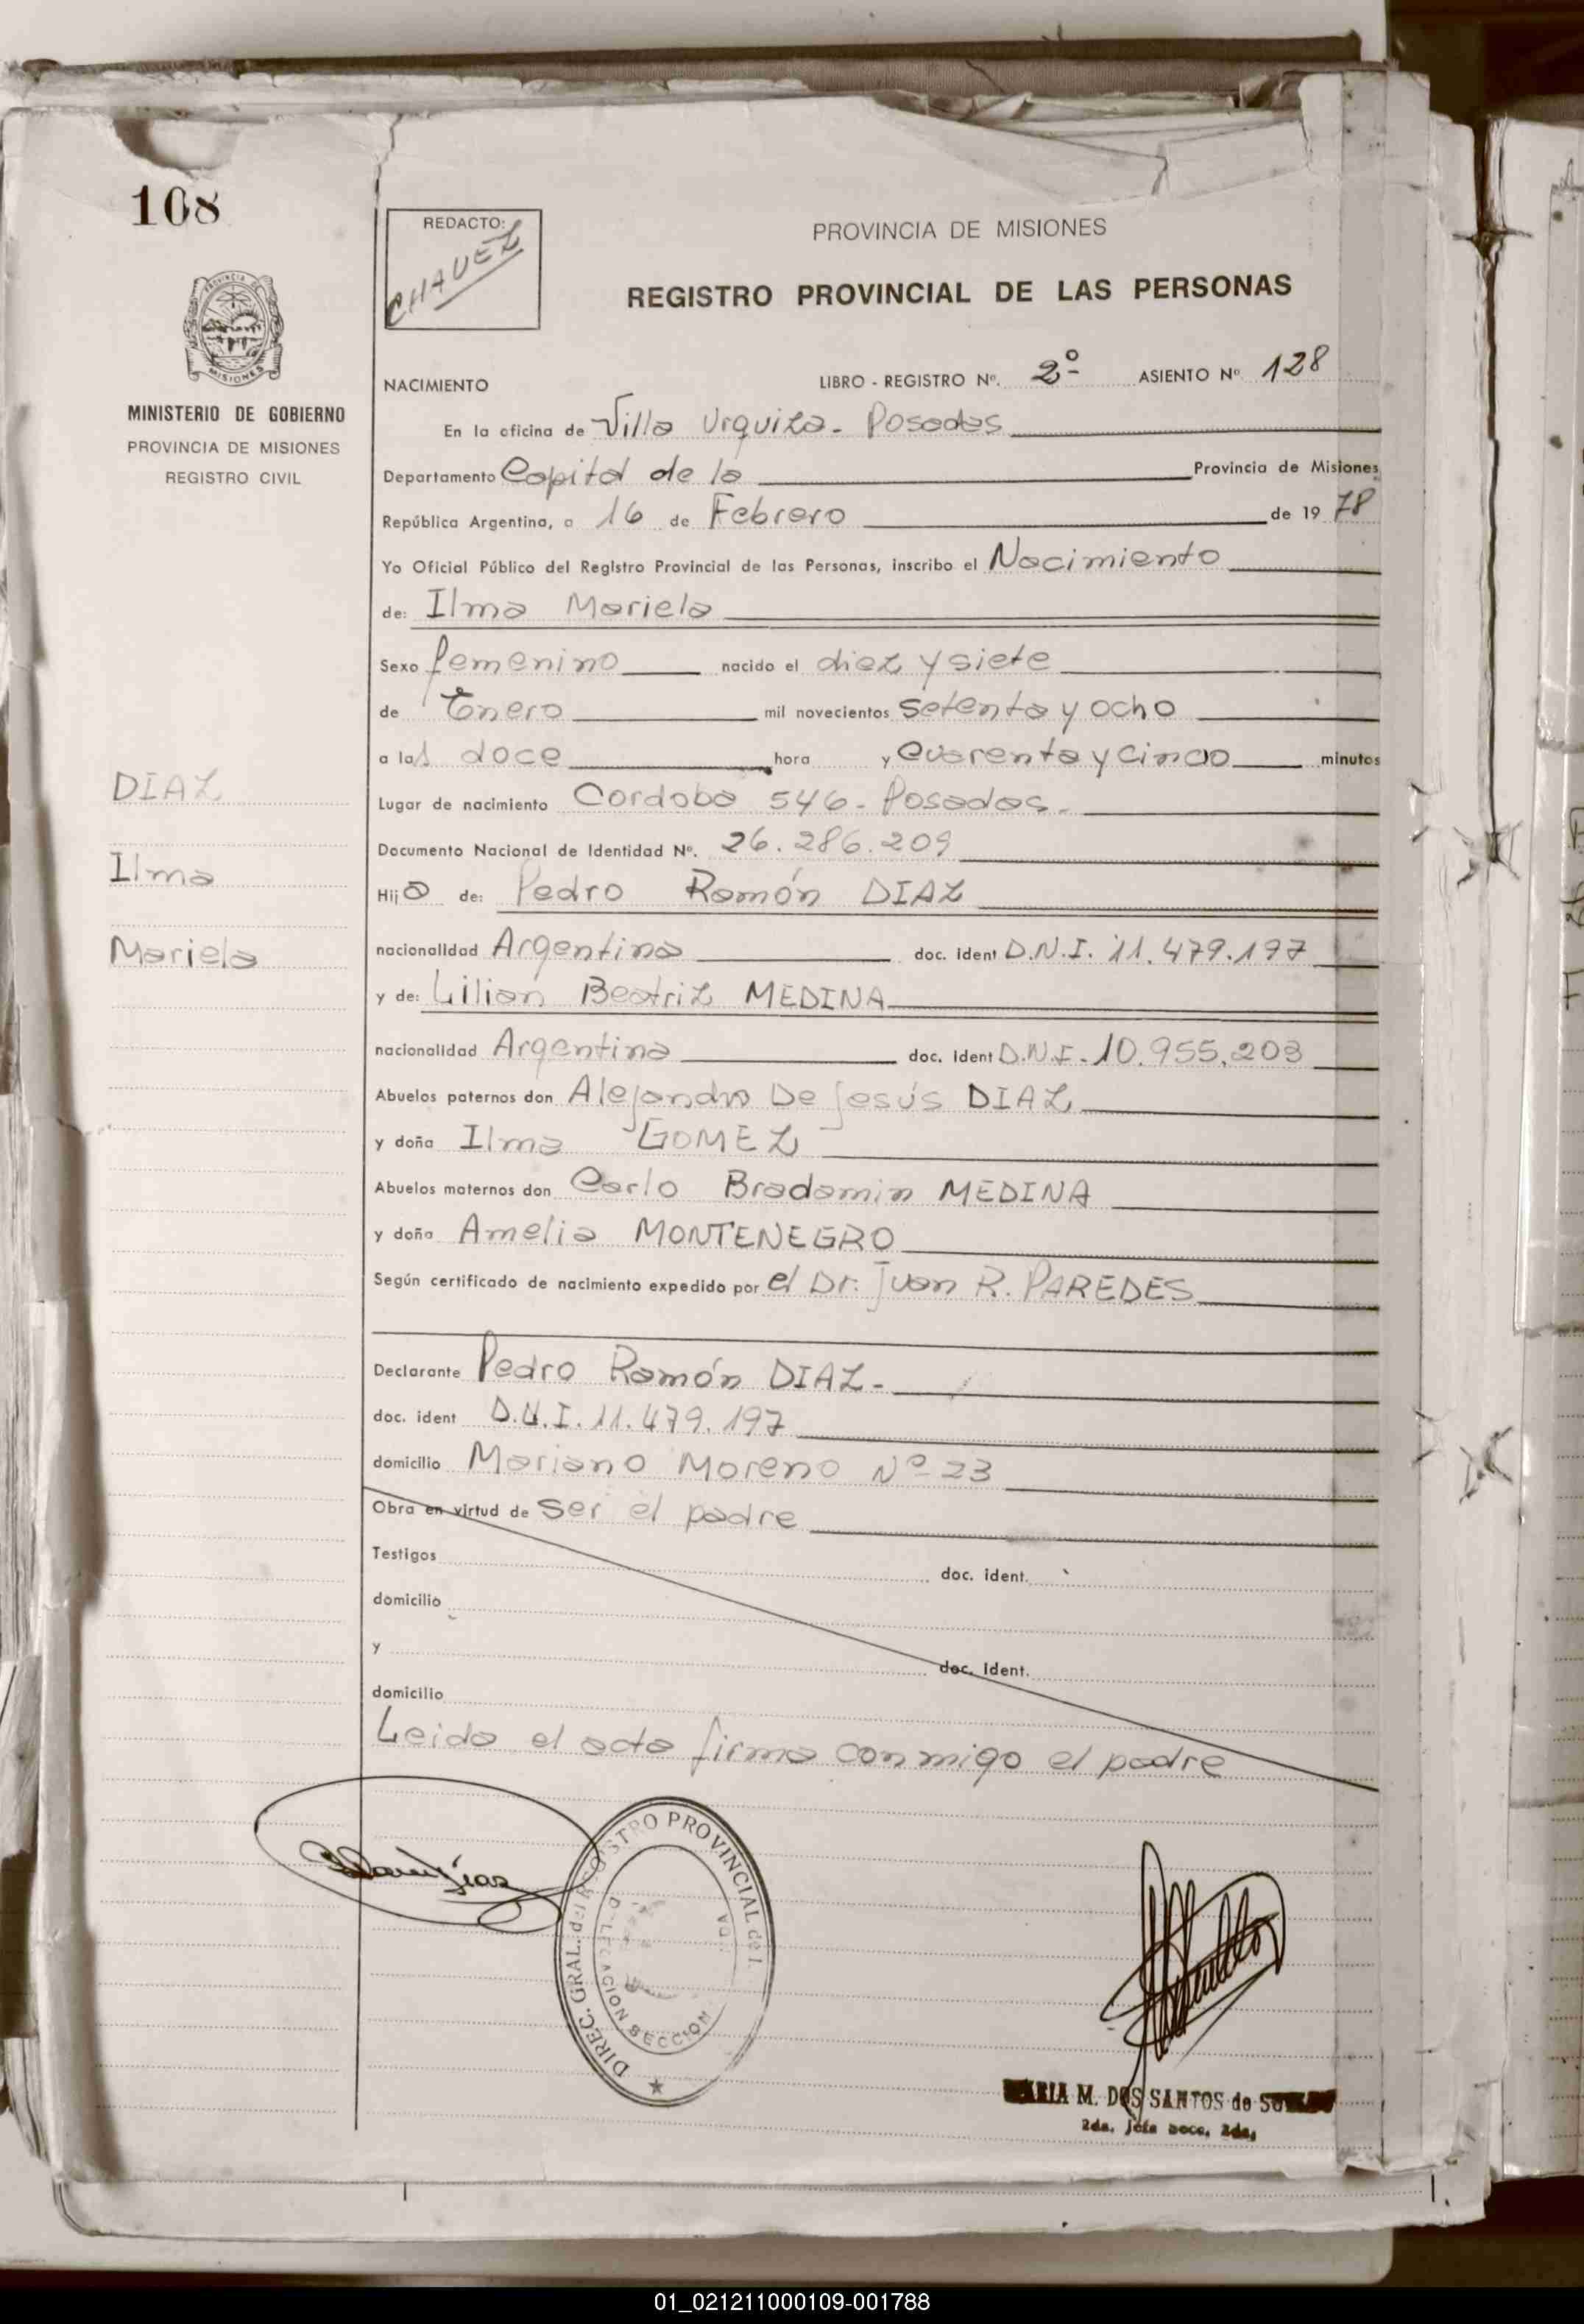 108
REDACTO:
CHAVEZ
PROVINCIA DE MISIONES
REGISTRO PROVINCIAL DE LAS PERSONAS
MISIONES
MINISTERIO DE GOBIERNO
PROVINCIA DE MISIONES
REGISTRO CIVIL
NACIMIENTO LIBRO - REGISTRO Nº. 2º ASIENTO Nº 128
En la oficina de Villa Urquiza - Posadas
Departamento Capital de la Provincia de Misiones
República Argentina, a 16 de Febrero de 19 78
Yo Oficial Público del Registro Provincial de las Personas, inscribo el Nacimiento
de: Ilma Mariela
Sexo femenino nacido el diez y siete
de Enero mil novecientos setenta y ocho
a las doce hora y cuarenta y cinco minutos
DIAZ
Lugar de nacimiento Cordoba 546 - Posadas.
Documento Nacional de Identidad Nº. 26.286.209
Ilma
Hija de: Pedro Ramón DIAZ
Mariela
nacionalidad Argentina doc. ident D.N.I. 11.479.197
y de: Lilian Beatriz MEDINA
nacionalidad Argentina doc. ident D.N.I. 10.955.203
Abuelos paternos don Alejandro De Jesús DIAZ
y doña Ilma GOMEZ
Abuelos maternos don Carlo Bradamin MEDINA
y doña Amelia MONTENEGRO
Según certificado de nacimiento expedido por el Dr. Juan R. PAREDES
Declarante Pedro Ramón DIAZ -
doc. ident D.N.I. 11.479.197
domicilio Mariano Moreno Nº 23
Obra en virtud de ser el padre
Testigos doc. ident.
domicilio
y doc. ident.
domicilio
Leida el acta firma conmigo el padre
DIREC. GRAL. del REGISTRO PROVINCIAL de
SECCION
MARIA M. DOS SANTOS de
2da. Jefa Secc. 2da.
01_021211000109-001788